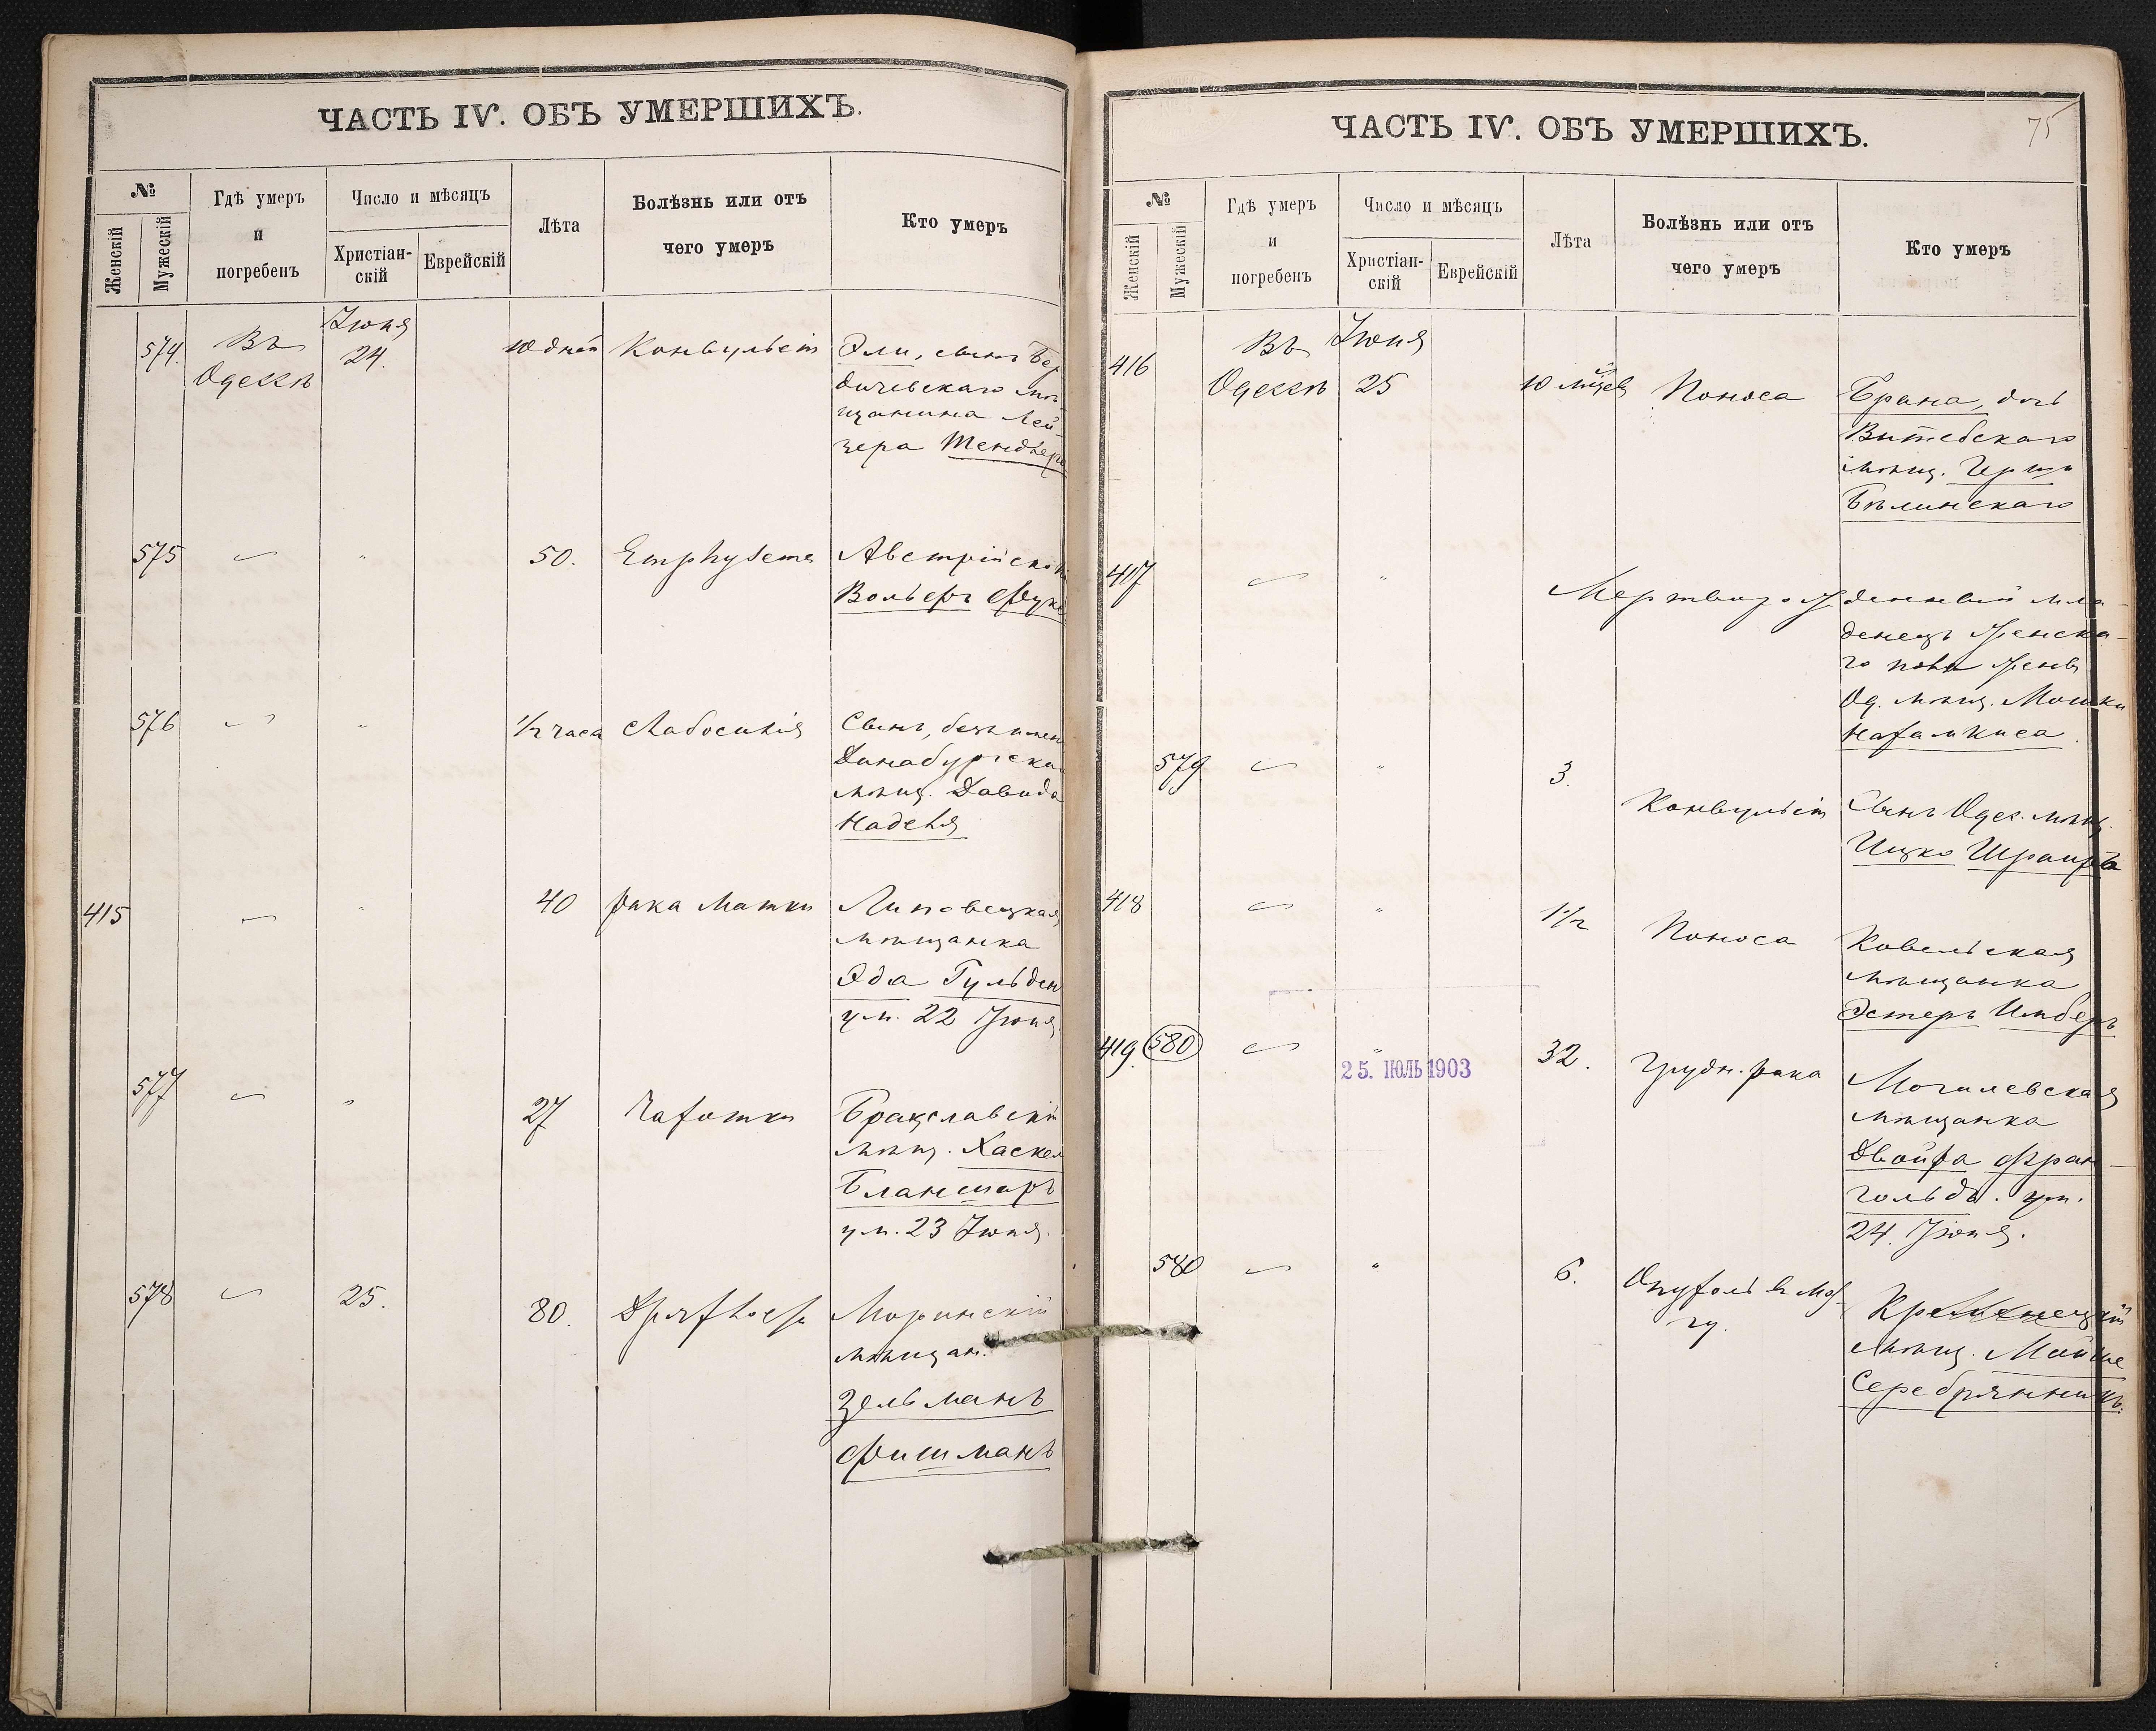 ЧАСТЬ IV. ОБЪ УМЕРШИХЪ.
№
Женскій
Мужескій
Гдѣ умеръ
и
погребенъ
Число и мѣсяцъ
Христіан-
скій
Еврейскій
Лѣта
Болѣзнь или отъ
чего умеръ
Кто умеръ
574. Въ Одессѣ Іюня 24. 10 дней Конвульсіи Эли, сынъ Бер
дичевскаго мѣ-
щанина Лей-
зера
575 50. Emphysema Австрійскій
Вольфъ Фукс
576 1/2 часа Слабосилія Сынъ, безъимен
Динабургска
мѣщ. Давида
Наделя
415 40 Рака матки Липовецкая
мѣщанка
Эда Гульден
ум. 22 Іюня.
577 27 Чахотки Брацлавскій
мѣщ. Хаскел
Бланшаръ
ум. 23 Іюня.
578 25. 80. Дряхлость
мѣщан.
Зельманъ
Фишманъ
ЧАСТЬ IV. ОБЪ УМЕРШИХЪ.
75
№
Женскій
Мужескій
Гдѣ умеръ
и
погребенъ
Число и мѣсяцъ
Христіан-
скій
Еврейскій
Лѣта
Болѣзнь или отъ
чего умеръ
Кто умеръ
416 Въ Одессѣ Іюня 25 10 мѣсцев Поноса Брана, дочь
Витебскаго
мѣщ. Герша
Бѣлинскаго
417 Мертворожденный мла-
денецъ женска-
го пола жены
Од. мѣщ. Мошки
579 3. Конвульсіи Сынъ Одес. мѣщ.
Ицко Шраира
418 1 1/2 Поноса Ковельская
мѣщанка
Эстеръ Имберъ
419. 580 25. ІЮЛЬ 1903 32. Грудн. рака Могилевская
мѣщанка
Двойра Фран-
гольдъ. ум.
24 Іюня.
580 6. Опухоль въ моз-
гу. Кременецкій
мѣщ. Мойше
Серебрянникъ.